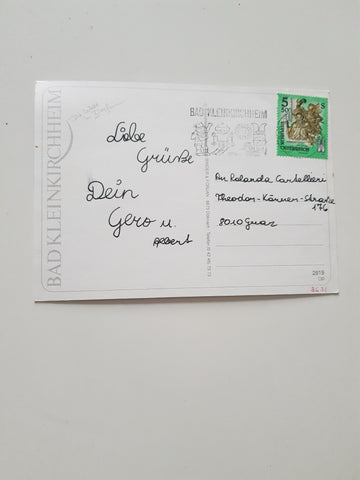 BAD KLEINKIRCHHEIM
Liebe
Grüße
Dein
Gero u.
Albert
BAD KLEINKIRCHHEIM
5 S
ÖSTERREICH
An Rolanda Castelleri
Theodor-Körner-Straße
176
8010 Graz
2919